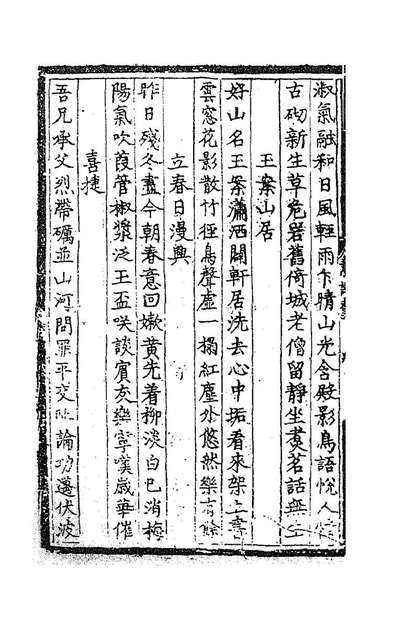 淑氣融和日風輕雨乍晴山光含殿影鳥語悅人
古砌新生草危岩舊倚城老僧留靜坐煑茗話無生
玉案山居
好山名玉案瀟洒闢軒居洗去心中垢看來架上書
雲窓花影散竹徑鳥聲虛一榻紅塵外悠然樂有餘
立春日漫興
昨日殘冬盡今朝春意回嫰黄先着柳淡白已消梅
陽氣吹葭管椒漿泛玉盃咲談賓友樂寧嘆歲華催
喜捷
吾兄承父烈帶礪並山河問罪平交阯論功邁伏波